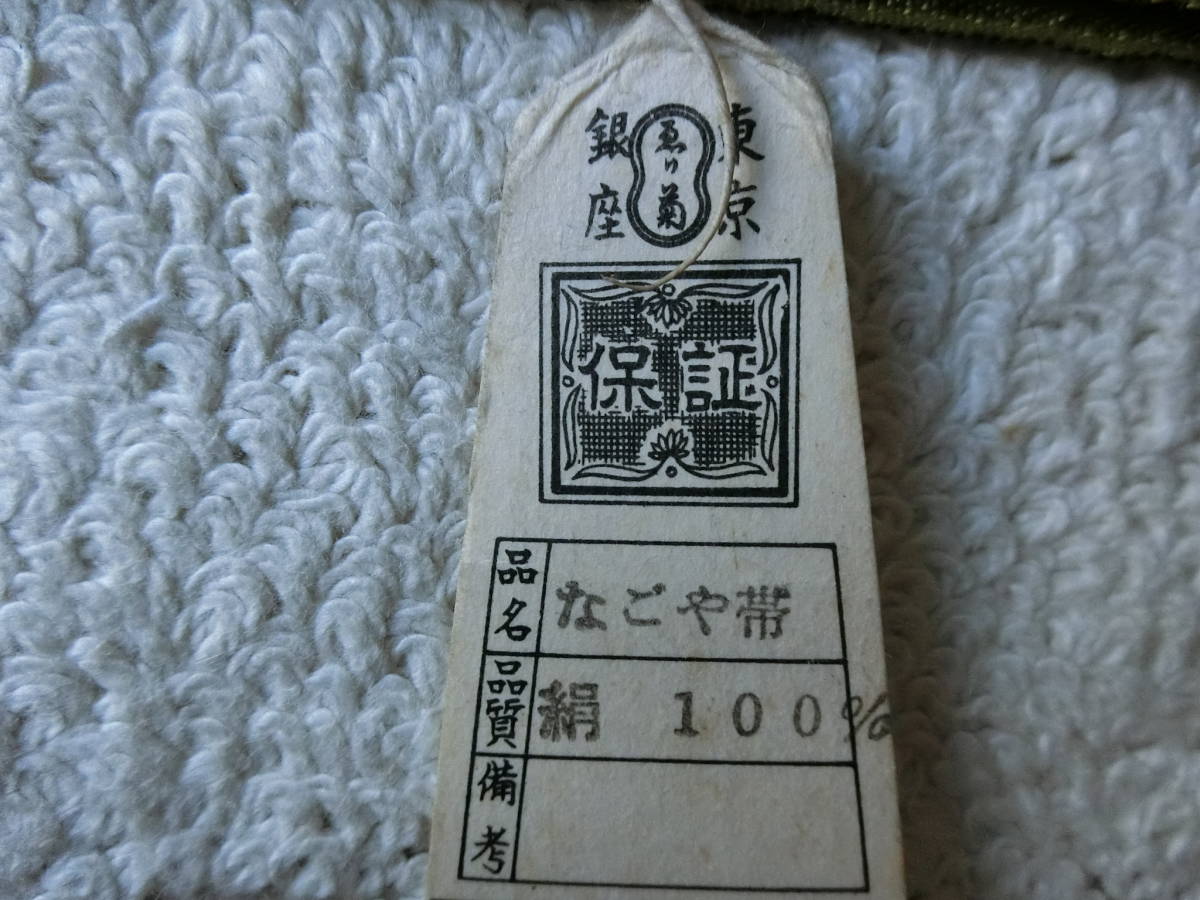 東京
ゑり菊
銀座
保証
品名 なごや帯
品質 絹 100%
備考